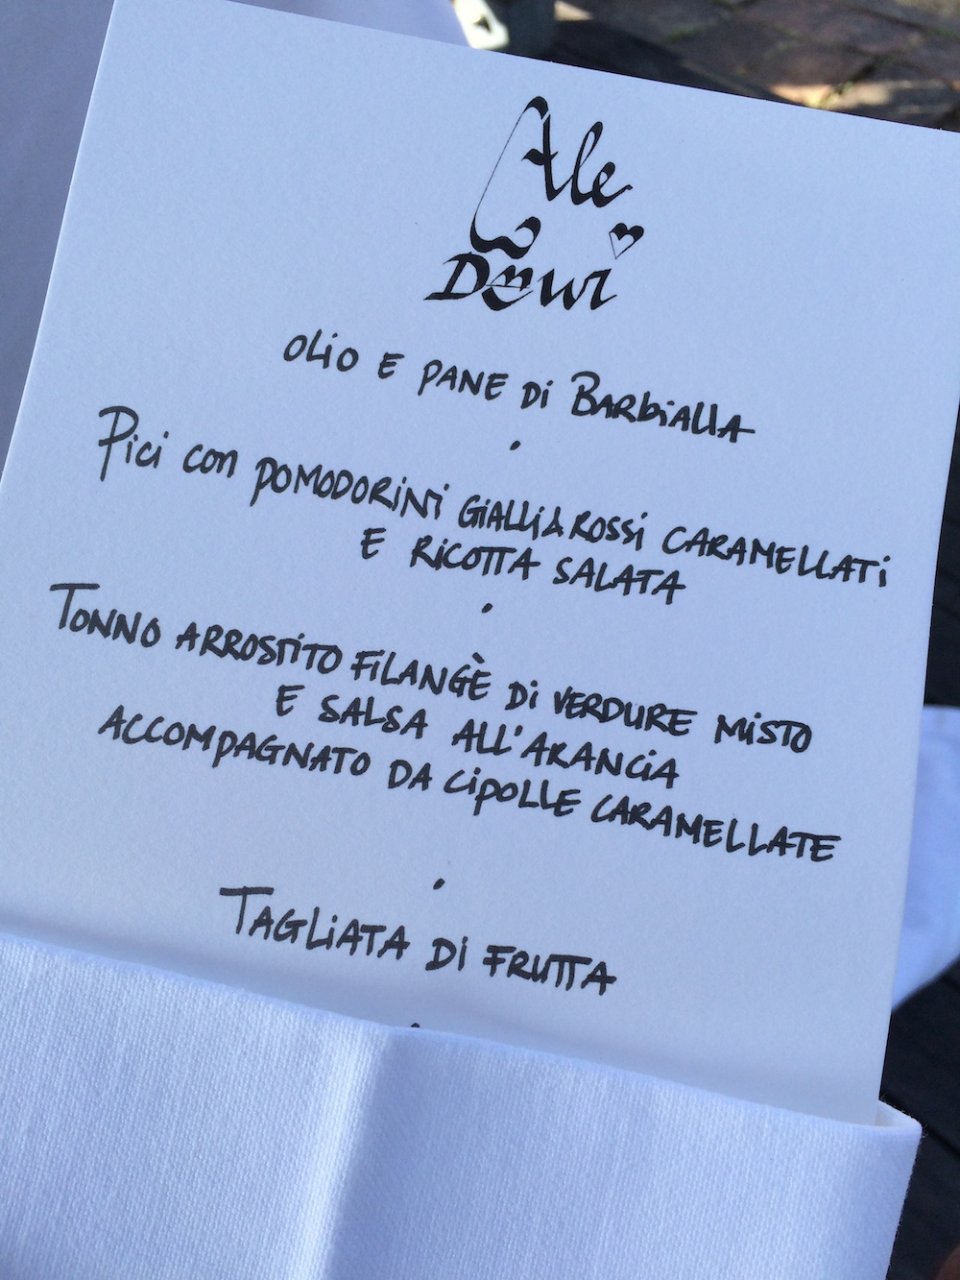 Ale
Dewi
Olio e pane di Barbialla
Pici con pomodorini gialli & rossi caramellati
e ricotta salata
Tonno arrostito filangè di verdure misto
e salsa all'arancia
accompagnato da cipolle caramellate
Tagliata di frutta